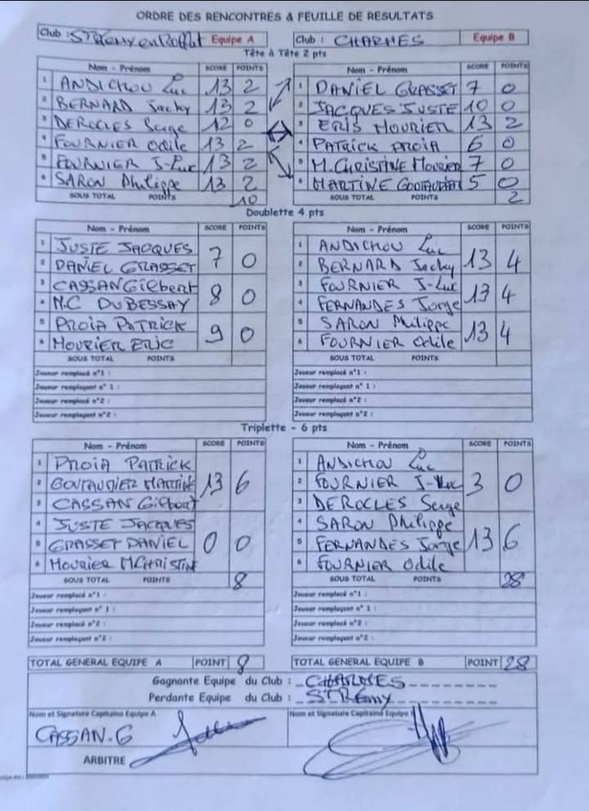 ORDRE DES RENCONTRES & FEUILLE DE RESULTATS
Club : St Remy en Rollat Equipe A Club : CHARMES Equipe B
Tête à Tête 2 pts
Nom - Prénom SCORE POINTS Nom - Prénom SCORE POINTS
1 ANDICHOU Luc 13 2 1 DANIEL GRASSET 7 0
2 BERNARD Jacky 13 2 2 JACQUES JUSTE 10 0
3 DEROCLES Serge 12 0 3 ERIS MOURIER 13 2
4 FOURNIER Odile 13 2 4 PATRICK PROIA 6 0
5 FOURNIER J-Luc 13 2 5 M.CHRISTINE Mourier 7 0
6 SARON Philippe 13 2 6 MARTINE GOUTAUDIER 5 0
SOUS TOTAL POINTS 10 SOUS TOTAL POINTS 2
Doublette 4 pts
Nom - Prénom SCORE POINTS Nom - Prénom SCORE POINTS
1 JUSTE JACQUES 1 ANDICHOU Luc
2 DANIEL GRASSET 7 0 2 BERNARD Jacky 13 4
3 CASSAN Gilbert 3 FOURNIER J-Luc
4 M.C DUBESSAY 8 0 4 FERNANDES Jorge 13 4
5 PROIA PATRICK 5 SARON Philippe
6 MOURIER ERIC 9 0 6 FOURNIER Odile 13 4
SOUS TOTAL POINTS SOUS TOTAL POINTS
Joueur remplacé n°1 : Joueur remplacé n°1 :
Joueur remplaçant n° 1 : Joueur remplaçant n° 1 :
Joueur remplacé n°2 : Joueur remplacé n°2 :
Joueur remplaçant n°2 : Joueur remplaçant n°2 :
Triplette - 6 pts
Nom - Prénom SCORE POINTS Nom - Prénom SCORE POINTS
1 PROIA PATRICK 1 ANDICHOU Luc
2 GOUTAUDIER MARTINE 13 6 2 FOURNIER J-Luc 3 0
3 CASSAN Gilbert 3 DEROCLES Serge
4 JUSTE JACQUES 4 SARON Philippe
5 GRASSET DANIEL 0 0 5 FERNANDES Jorge 13 6
6 MOURIER MCHRISTINE 6 FOURNIER Odile
SOUS TOTAL POINTS 8 SOUS TOTAL POINTS 28
Joueur remplacé n°1 : Joueur remplacé n°1 :
Joueur remplaçant n°1 : Joueur remplaçant n° 1 :
Joueur remplacé n°2 : Joueur remplacé n°2 :
Joueur remplaçant n°2 : Joueur remplaçant n°2 :
TOTAL GENERAL EQUIPE A POINT 8 TOTAL GENERAL EQUIPE B POINT 28
Gagnante Equipe du Club : CHARMES
Perdante Equipe du Club : ST REMY
Nom et Signature Capitaine Equipe A Nom et Signature Capitaine Equipe
CASSAN.G
ARBITRE